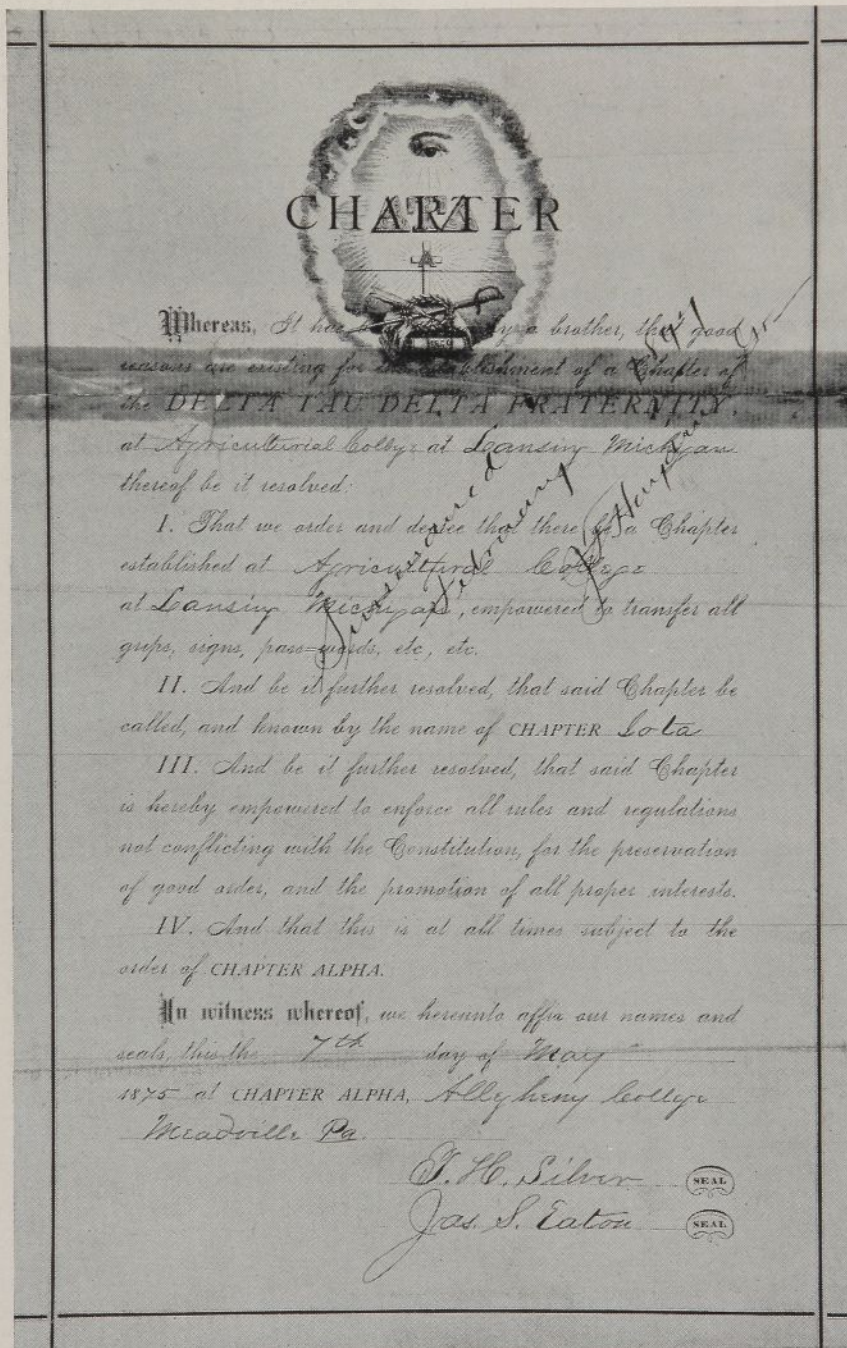 CHARTER
ΔΤΔ
A
1859
Whereas, It has by a brother, that good
reasons are existing for the establishment of a Chapter of
the DELTA TAU DELTA FRATERNITY,
at Agricultural Colleg at Lansing Michigan
thereof be it resolved:
I. That we order and decree that there be a Chapter
established at Agricultural College
at Lansing Michigan, empowered to transfer all
grips, signs, pass-words, etc., etc.
II. And be it further resolved, that said Chapter be
called, and known by the name of CHAPTER Iota
III. And be it further resolved, that said Chapter
is hereby empowered to enforce all rules and regulations
not conflicting with the Constitution, for the preservation
of good order, and the promotion of all proper interests.
IV. And that this is at all times subject to the
order of CHAPTER ALPHA.
In witness whereof, we hereunto affix our names and
seals, this the 7th day of May
1875 at CHAPTER ALPHA, Allegheny College
Meadville Pa.
T. H. Silver SEAL
Jas. S. Eaton SEAL
Surrendered
February